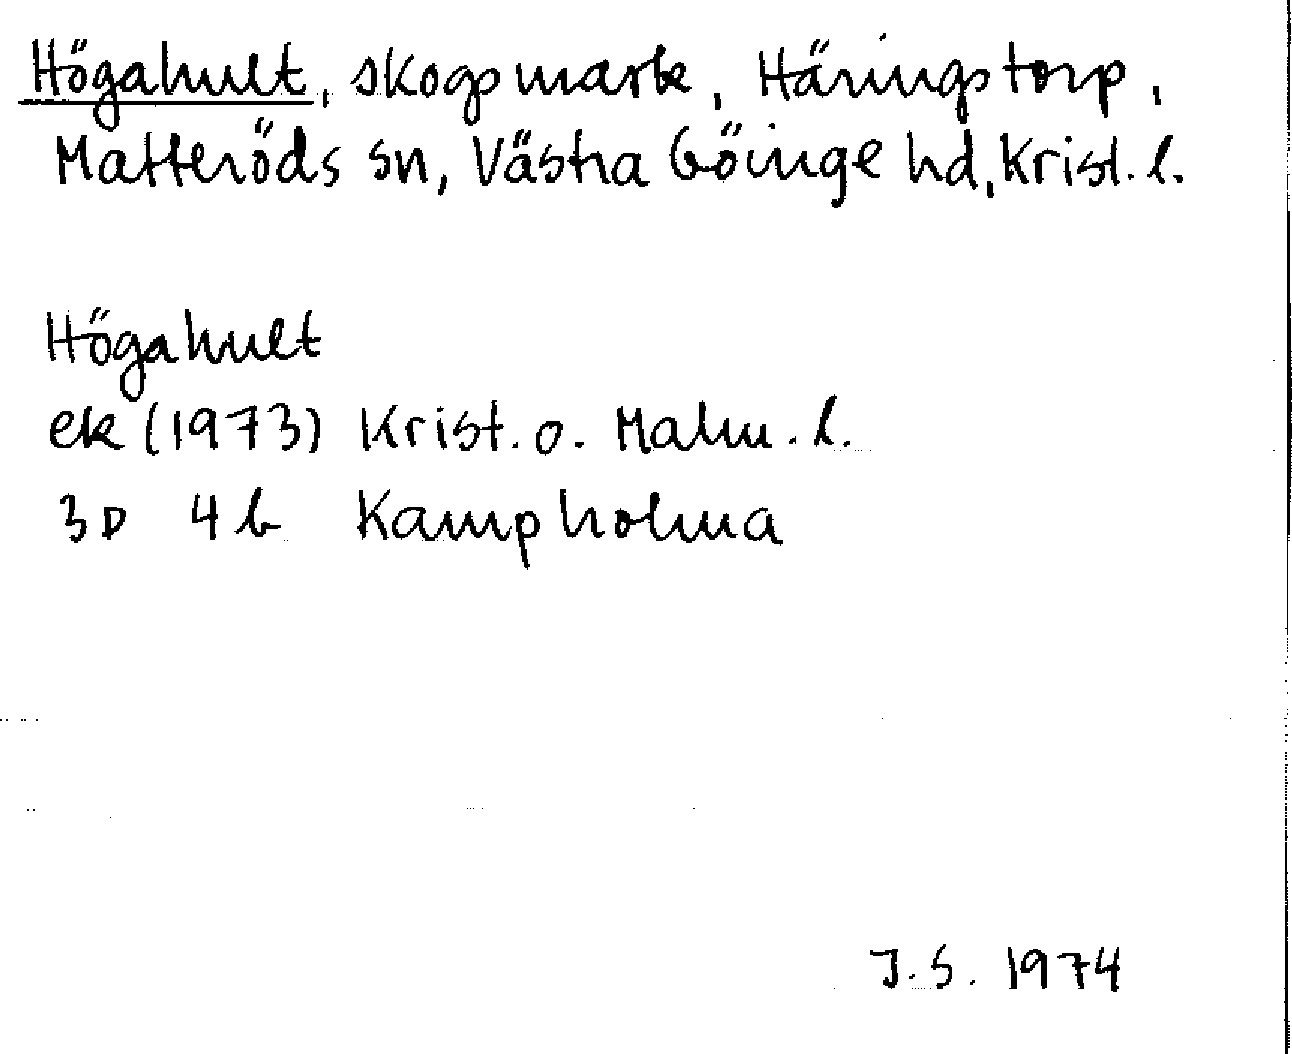 Högahult, skogsmark, Häringstorp,
Matteröds sn, Västra Göinge hd, Krist. l.
Högahult
ek (1973) Krist. o. Malm. l.
3D 4b Kampholma
J.S. 1974